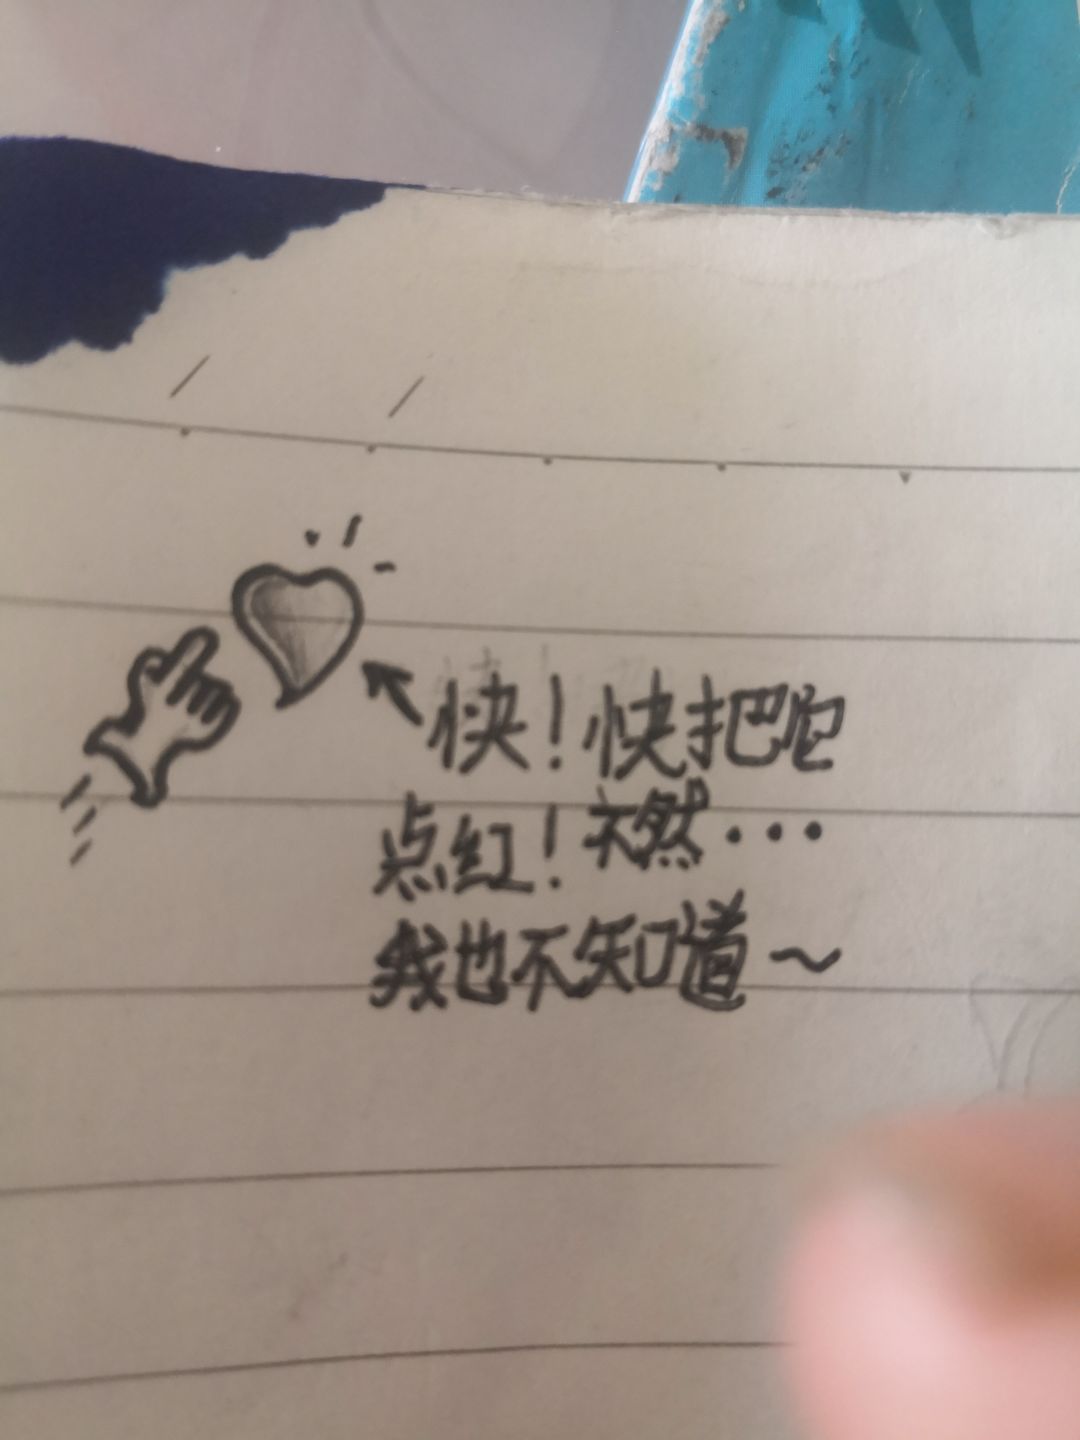 快！快把它
点红！不然...
我也不知道～